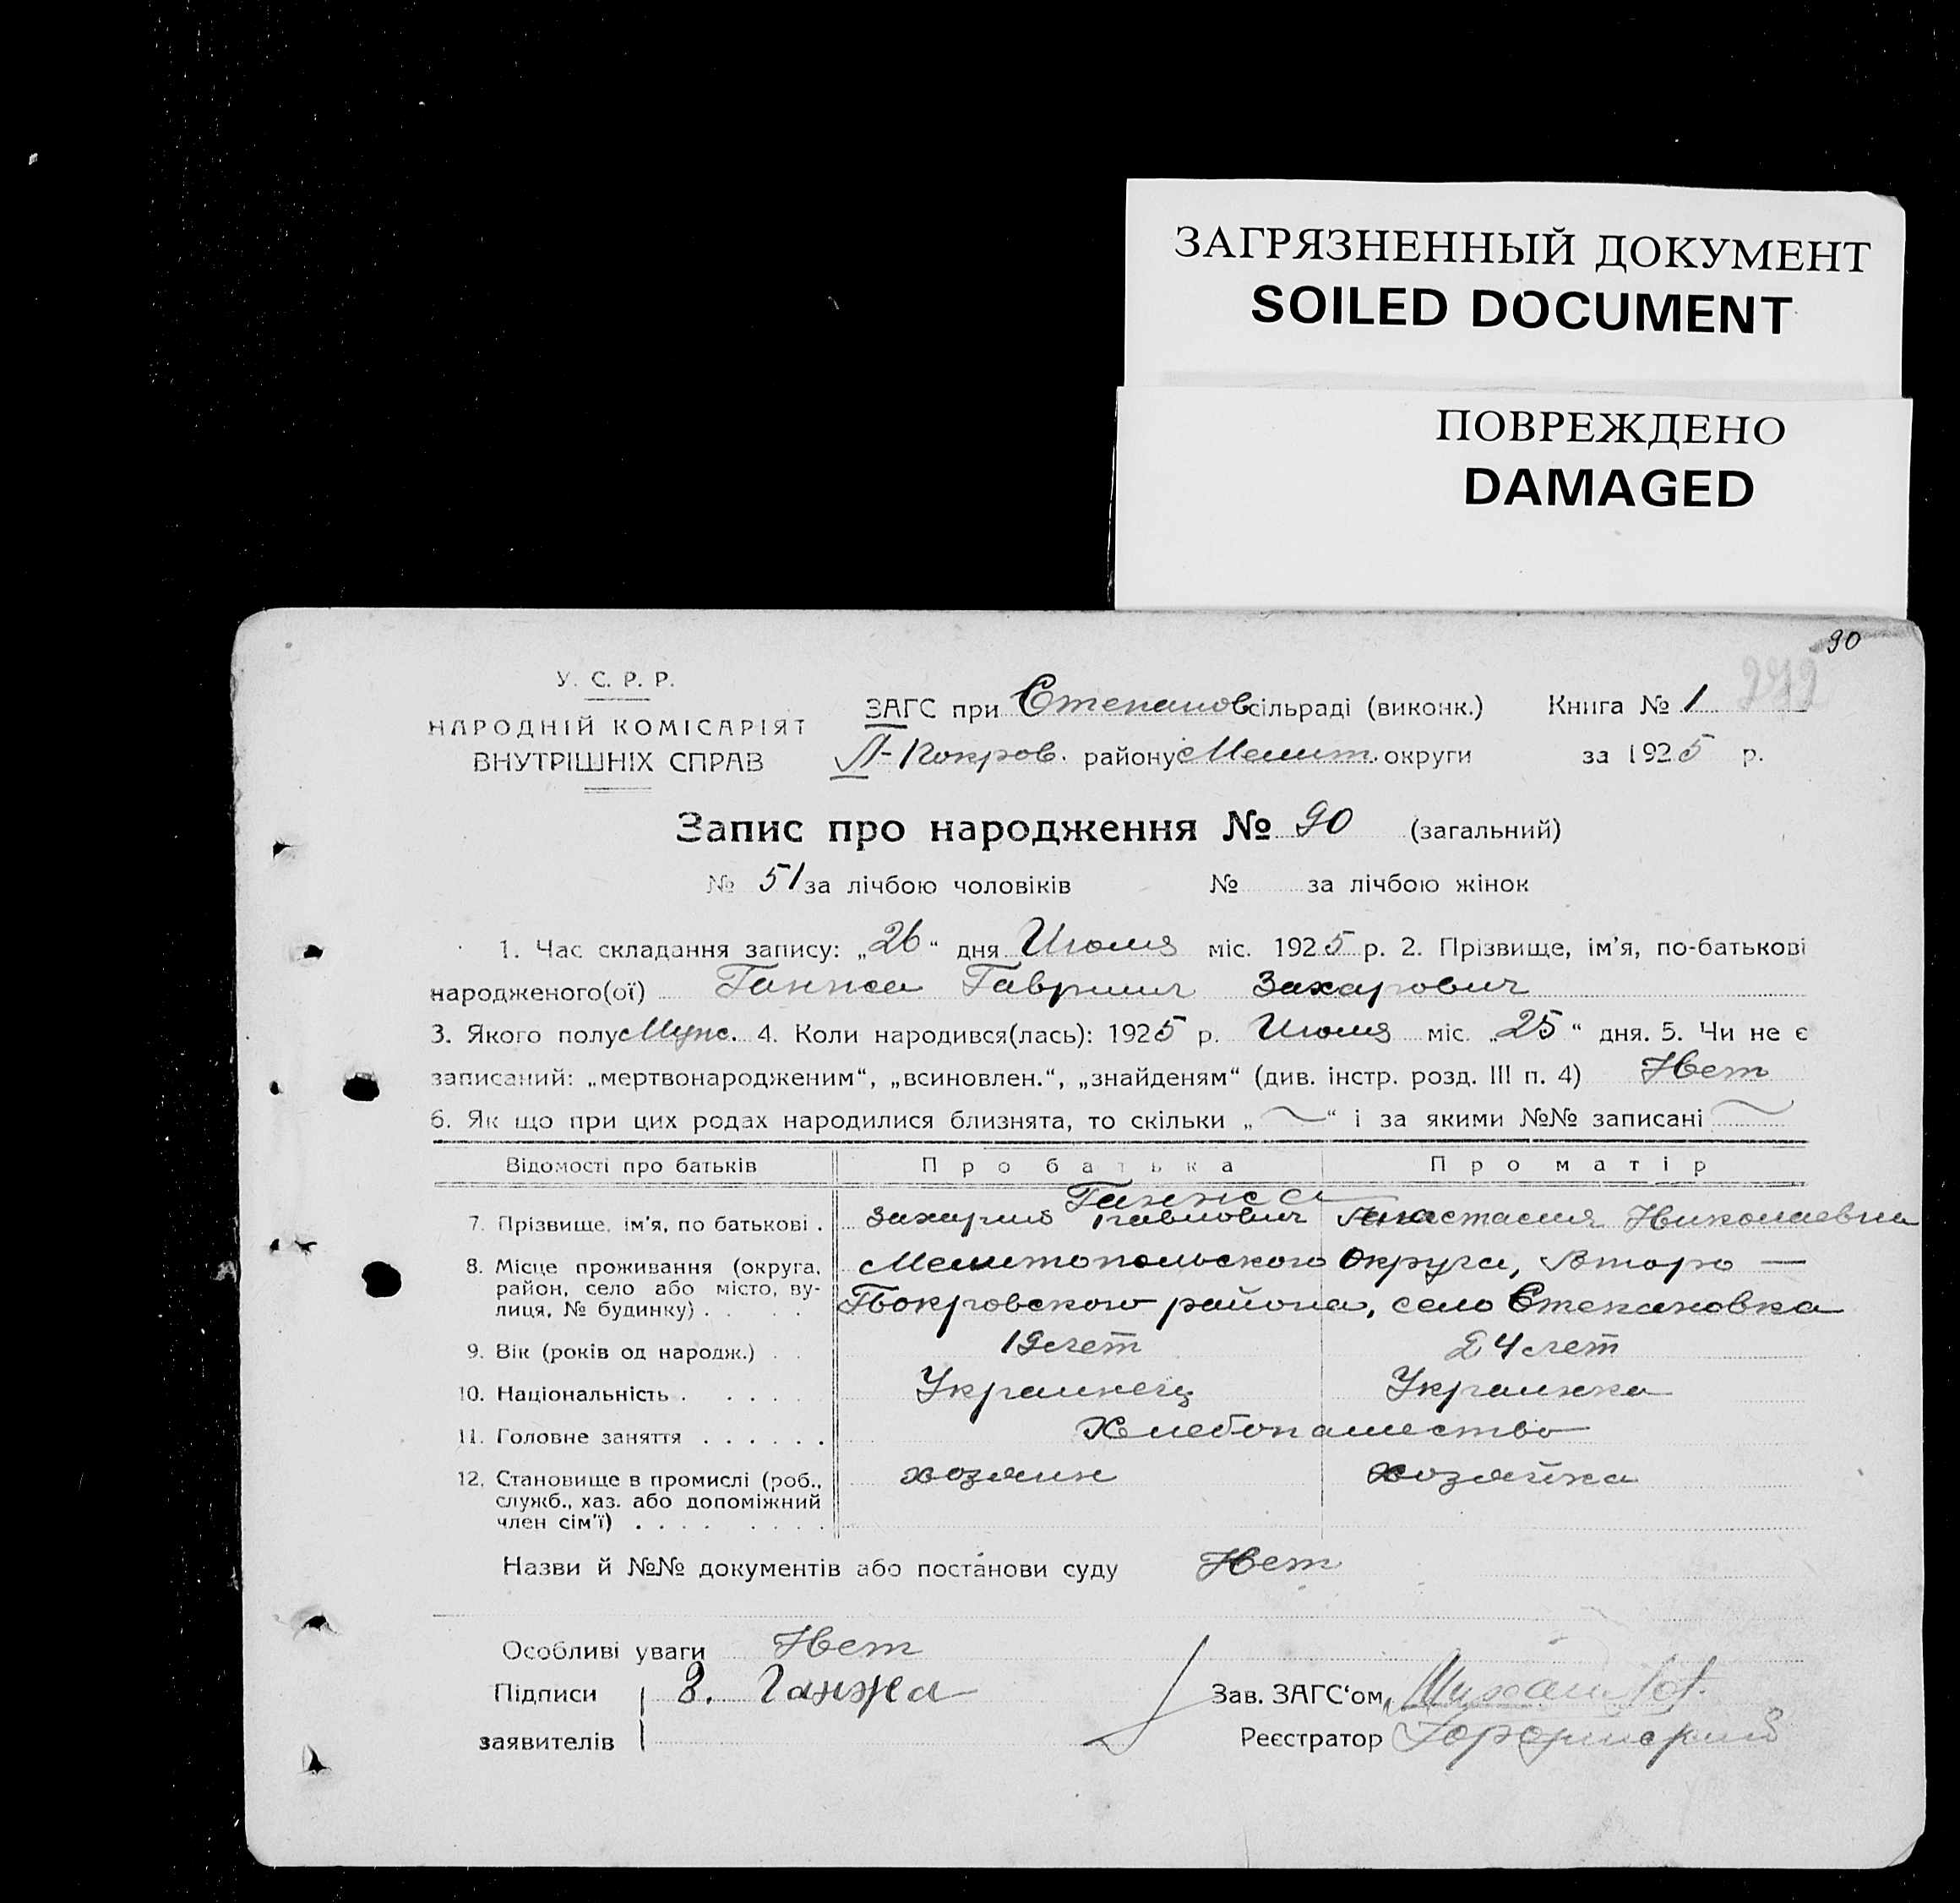 ЗАГРЯЗНЕННЫЙ ДОКУМЕНТ
SOILED DOCUMENT
ПОВРЕЖДЕНО
DAMAGED
90
272
У. С. Р. Р.
НАРОДНІЙ КОМІСАРІЯТ
ВНУТРІШНІХ СПРАВ
ЗАГС при Степанов сільраді (виконк.) Книга № 1
II-Покров. району Мелит. округи за 1925 р.
Запис про народження № 90 (загальний)
№ 51 за лічбою чоловіків № за лічбою жінок
1. Час складання запису: „26“ дня Июля міс. 1925 р. 2. Прізвище, ім’я, по-батькові
народженого(ої) Ганжа Гавриил Захарович
3. Якого полу Муж. 4. Коли народився(лась): 1925 р. Июля міс. „25“ дня. 5. Чи не є
записаний: „мертвонародженим“, „всиновлен.“, „знайденям“ (див. інстр. розд. III п. 4) Нет
6. Як що при цих родах народилися близнята, то скільки „ “ і за якими №№ записані
Відомості про батьків Про батька Про матір
Ганжа
7. Прізвище, ім’я, по батькові . Захарий Павлович Анастасия Николаевна
8. Місце проживання (округа, район, село або місто, вулиця, № будинку) . Мелитопольского Округа, Второ —
Покровского района, село Степановка
9. Вік (років од народж.) . . 19 лет 24 лет
10. Національність . . . . . Украинец Украинка
11. Головне заняття . . . . . . Хлебопашество
12. Становище в промислі (роб., хозяин хозяйка
служб., хаз. або допоміжний
член сім’ї) . . . . . . . .
Назви й №№ документів або постанови суду Нет
Особливі уваги Нет
Підписи З. Ганжа Зав. ЗАГС‘ом
заявителів Реєстратор